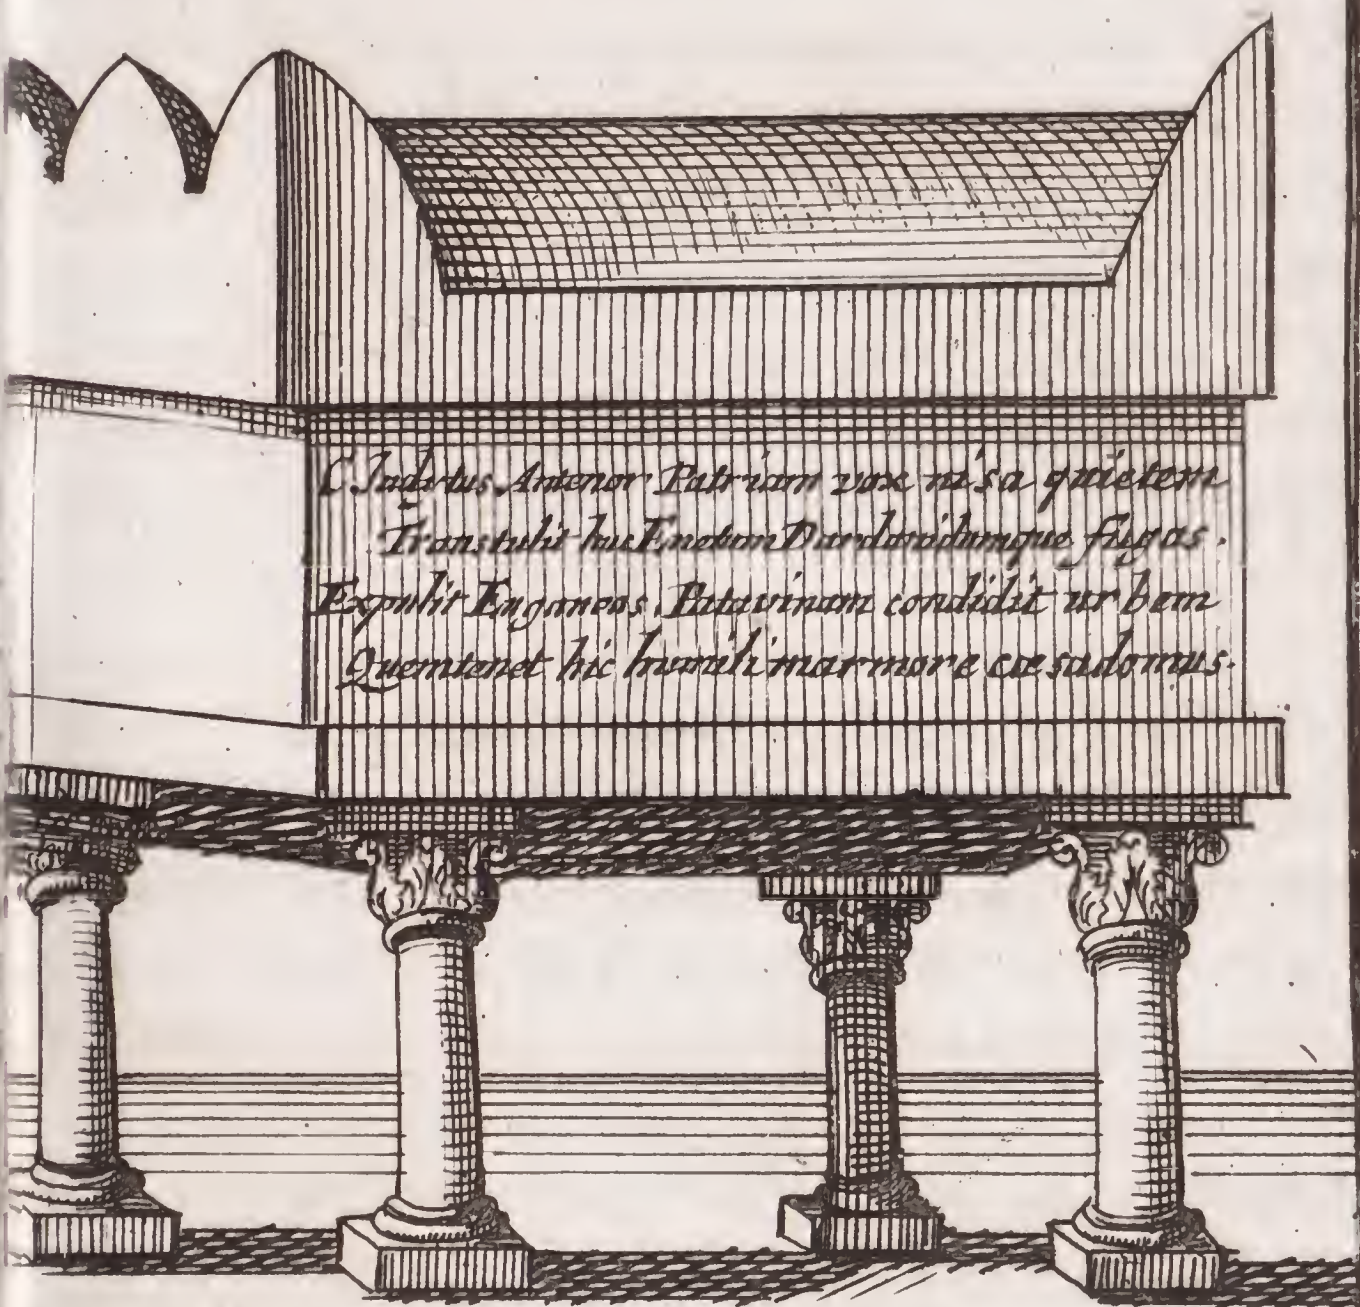 C Inclitus Antenor Patriam vox nisa quietem
Transtulit huc Enetum Dardanidumque fugas.
Expulit Euganeos, Patavinam condidit urbem
Quem tenet hic humili marmore cæsa domus.